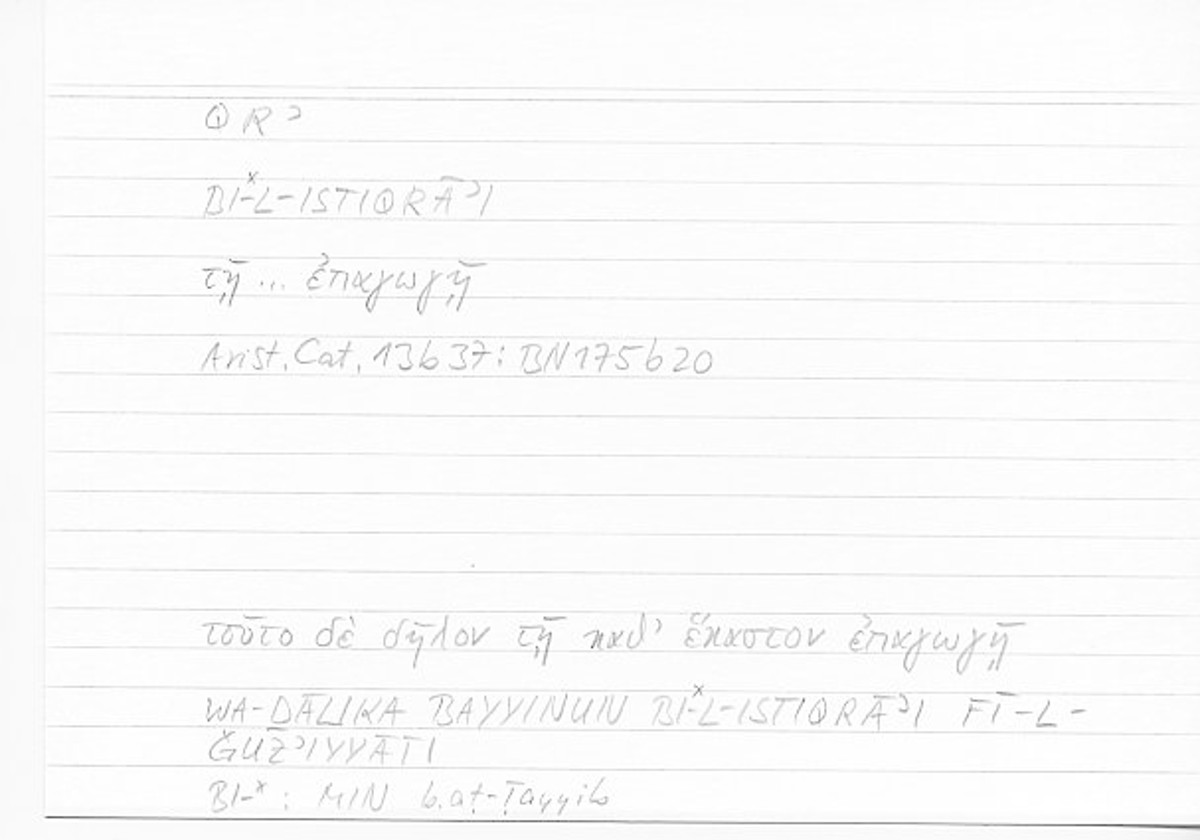 QRʾ
BI-ˣL-ISTIQRĀʾI
τῇ ... ἐπαγωγῇ
Arist. Cat. 13b37: BN175b20
τοῦτο δὲ δῆλον τῇ καθ’ ἕκαστον ἐπαγωγῇ
WA-ḎĀLIKA BAYYINUN BI-ˣL-ISTIQRĀʾI FĪ-L-
ǦUZʾIYYĀTI
BI-ˣ: MIN b.aṭ-Ṭayyib